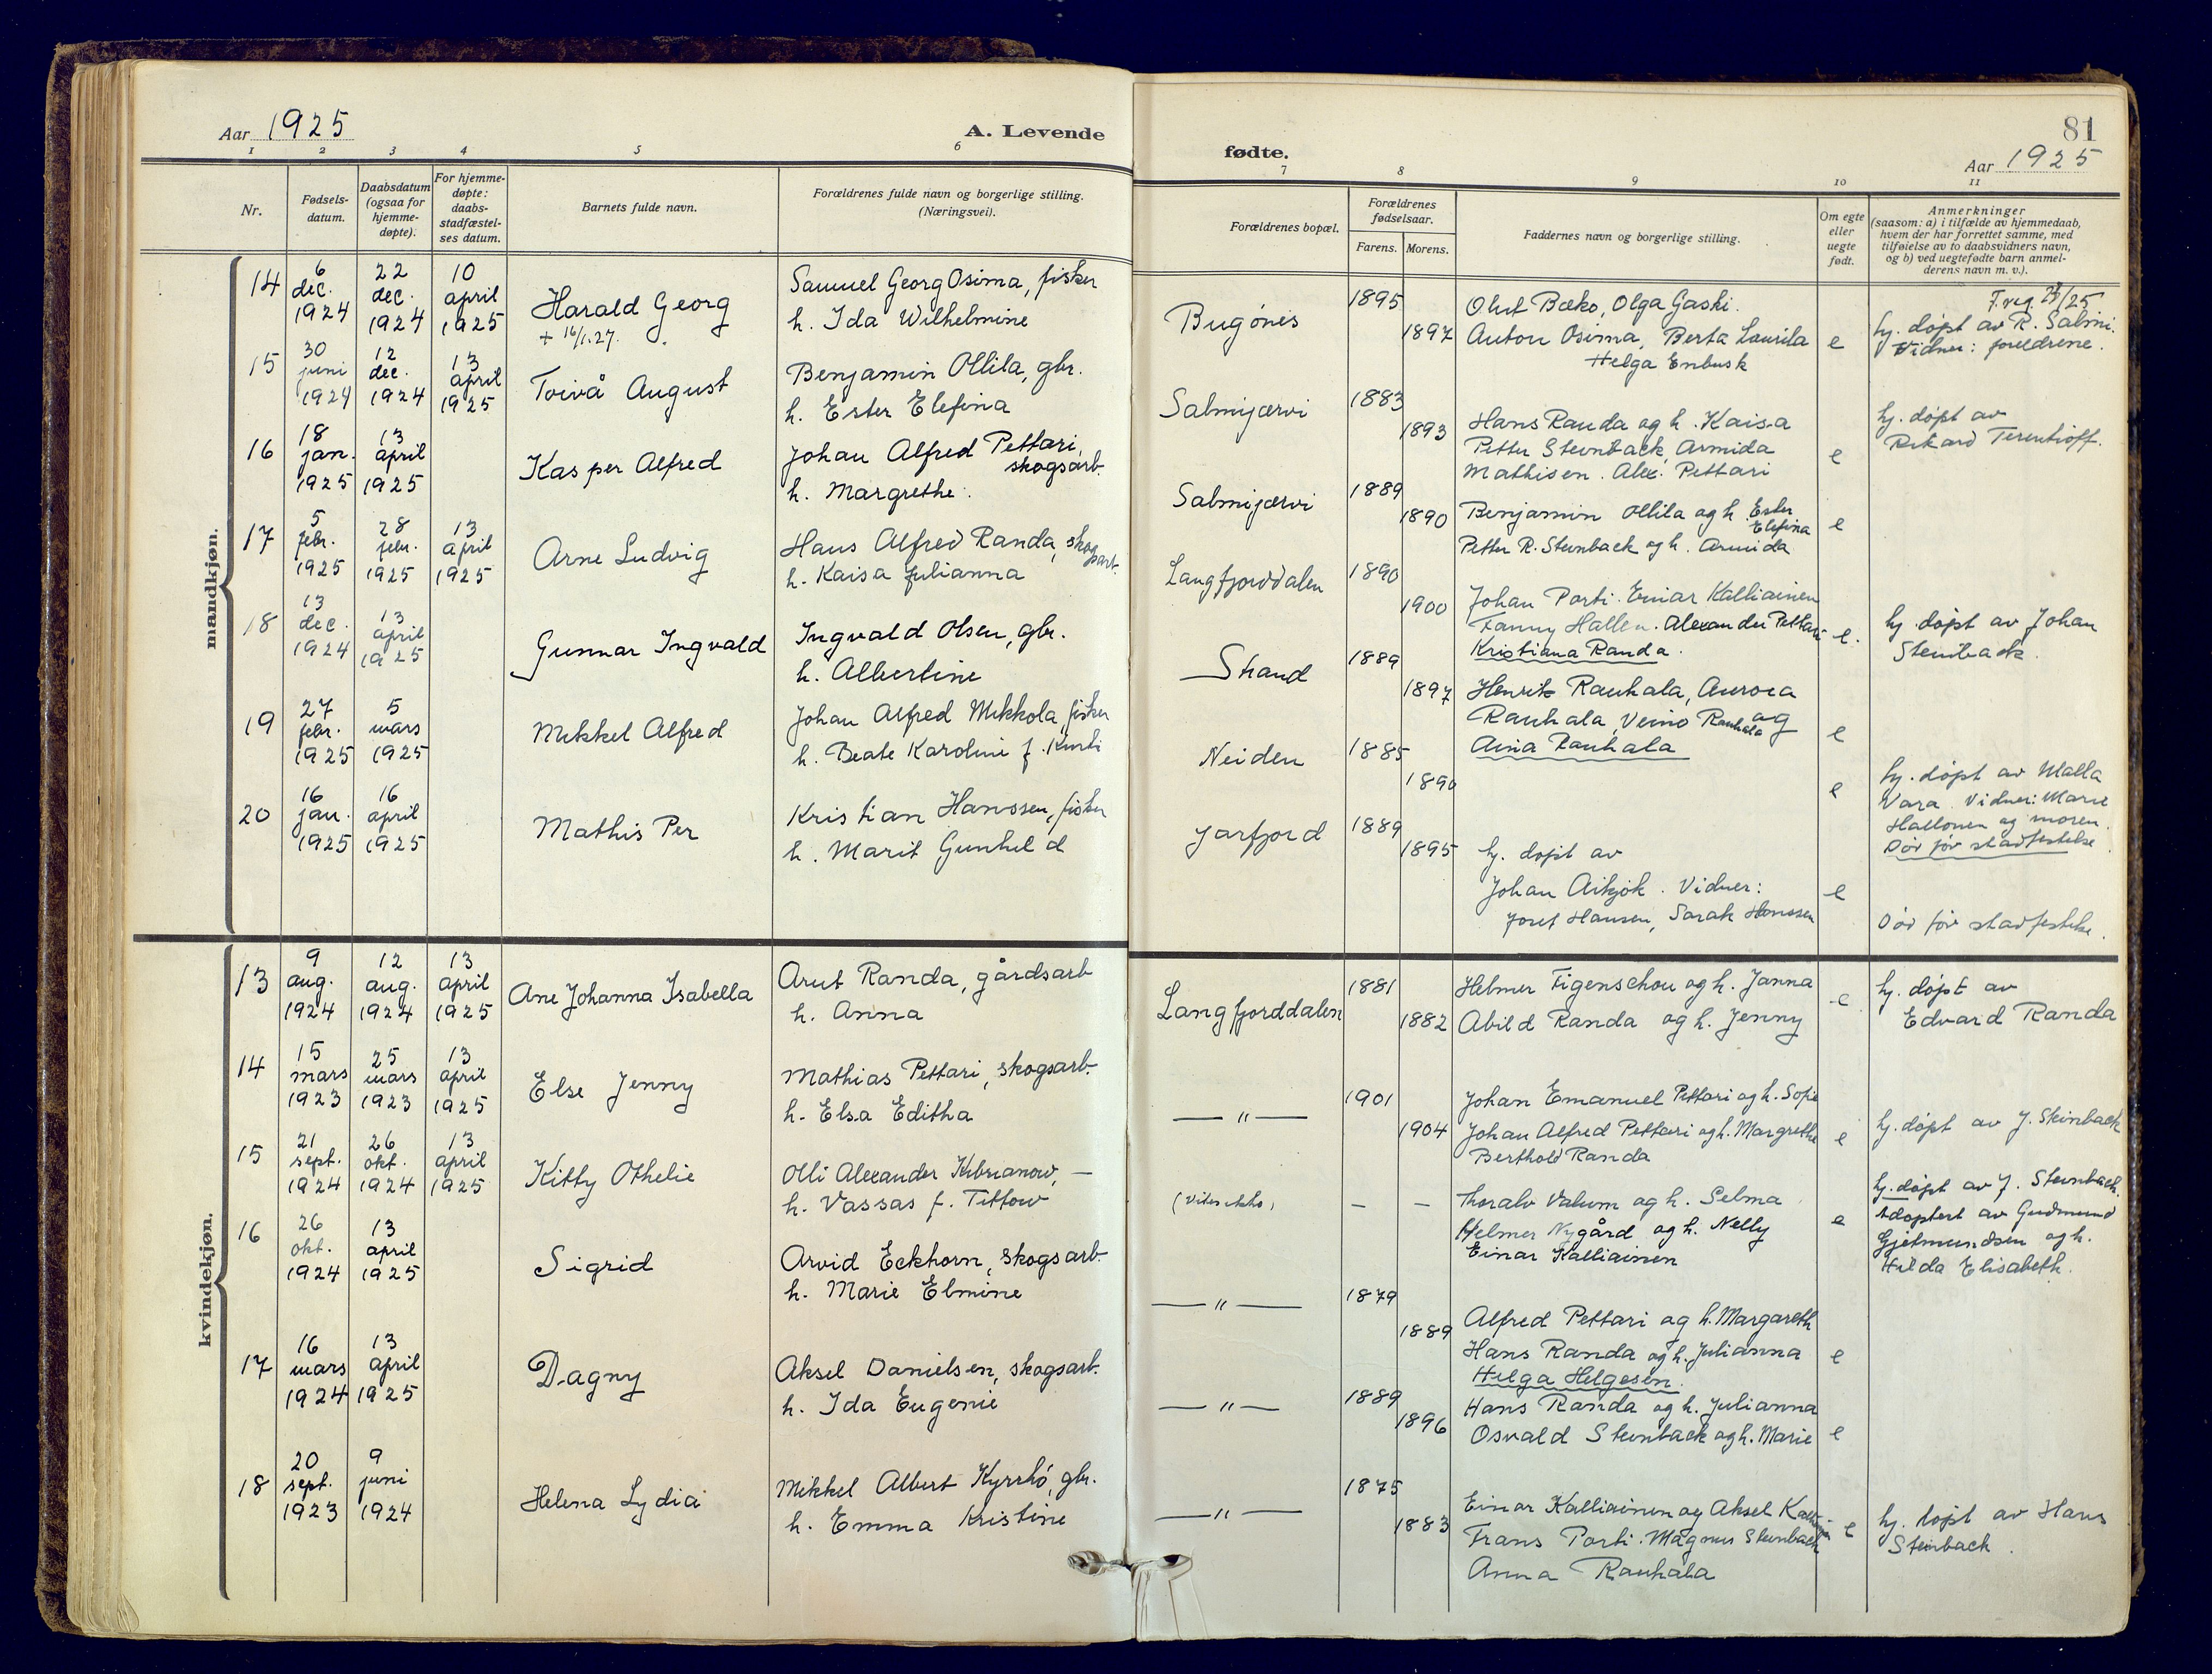 Aar 1925
A. Levende
fødte.
81
Aar 1925
1 2 3 4 5 6 7 8 9 10 11
Nr.
Fødsels-
datum.
Daabsdatum
(ogsaa for
hjemme-
døpte).
For hjemme-
døpte:
daabs-
stadfæstel-
ses datum.
Barnets fulde navn.
Forældrenes fulde navn og borgerlige stilling.
(Næringsvei).
Forældrenes bopæl.
Forældrenes
fødselsaar.
Farens. Morens.
Faddernes navn og borgerlige stilling.
Om egte
eller
uegte
født.
Anmerkninger
(saasom: a) i tilfælde av hjemmedaab,
hvem der har forrettet samme, med
tilføielse av to daabsvidners navn,
og b) ved uegtefødte barn anmel-
derens navn m. v.).
mandkjøn.
14
6
dec.
1924
22
dec.
1924
10
april
1925
Harald Georg
+ 16/1.27.
Samuel Georg Osima, fisker
h. Ida Wilhelmine
Bugönes
1895
1897
Olut Bæko, Olga Gaski.
Anton Osima, Berta Laurila
Helga Enbusk
e
hj. döpt av R. Salmi.
Vidner: foreldrene.
15
30
juni
1924
12
dec.
1924
13
april
1925
Toivå August
Benjamin Ollila, gbr.
h. Ester Elefina
Salmijærvi
1883
1893
Hans Randa og h. Kaisa
Petter Steinback, Armida
Mathisen. Alex. Pettari
e
hj. döpt av
Rikard Terentioff.
16
18
jan.
1925
13
april
1925
Kasper Alfred
Johan Alfred Pettari,
skogsarb.
h. Margrethe.
Salmijærvi
1889
1890
Benjamin Ollila og h. Ester
Elefina
Petter R. Steinback og h. Armida
e
17
5
febr.
1925
28
febr.
1925
13
april
1925
Arne Ludvig
Hans Alfred Randa, skogsarb.
h. Kaisa Julianna
Langfjorddalen
1890
1900
Johan Porti. Einar Kalliainen
Fanny Hallen. Alexander Pettari
Kristiana Randa.
e.
hj. döpt av Johan
Steinback.
18
13
dec.
1924
13
april
1925
Gunnar Ingvald
Ingvald Olsen, gbr.
h. Albertine
Strand
1889
1897
Henrik Rauhala, Aurora
Rauhala, Veino Rauhala og
Aina Rauhala
e
19
27
febr.
1925
5
mars
1925
Mikkel Alfred
Johan Alfred Mikkola, fisker
h. Beate Karoline f. Kurti
Neiden
1885
1890
e
hj. döpt av Malla
Vara. Vidner: Marie
Hallonen og moren.
Död för stadfestelse
20
16
jan.
1925
16
april
1925
Mathis Per
Kristian Hanssen, fisker
h. Marit Gunhild
Jarfjord
1889
1895
hj. döpt av
Johan Aikjok. Vidner:
Josef Hansen, Sarak Hanssen
e
Död för stadfestelse.
kvindekjøn.
13
9
aug.
1924
12
aug.
1924
13
april
1925
Ane Johanna Isabella
Arut Randa, gårdsarb
h. Anna
Langfjorddalen
1881
1882
Helmer Figenschou og h. Janna
Abild Randa og h. Jenny
e
hj. döpt av
Edvard Randa
14
15
mars
1923
25
mars
1923
13
april
1925
Else Jenny
Mathias Pettari, skogsarb.
h. Elsa Editha
— " —
1901
1904
Johan Emanuel Pettari og h. Sofie
Johan Alfred Pettari og h. Margrethe
Berthold Randa
e
hj. döpt av J. Steinback
15
21
sept.
1924
26
okt.
1924
13
april
1925
Kitty Othelie
Olli Alexander Kibrianow, —
h. Vassas f. Tittow
— —
Thoralv Valum og h. Selma
Helmer Nygård og h. Nelly
Einar Kalliainen
e
hj. döpt av J. Steinback.
Adoptert av Gudmund
Gjetmundsen og h.
Hilda Elisabeth.
16
26
okt.
1924
13
april
1925
Sigrid
Arvid Eckhorn, skogsarb.
h. Marie Elmine
— " —
1879
1889
Alfred Pettari og h. Margareth
Hans Randa og h. Julianna
Helga Helgesen.
e
17
16
mars
1924
13
april
1925
Dagny
Aksel Danielsen, skogsarb.
h. Ida Eugenie
— " —
1889
1896
Hans Randa og h. Julianna
Osvald Steinback og h. Marie
e
18
20
sept.
1923
9
juni
1924
Helena Lydia
Mikkel Albert Kyrrhö, gbr.
h. Emma Kristine
— " —
1875
1883
Einar Kalliainen og Aksel
Frans Porti. Magnus Steinback
Anna Rauhala
e
hj. döpt av Hans
Steinback.